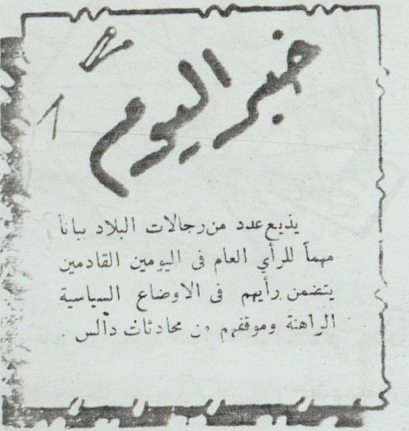 خبر اليوم
يذيع عدد من رجالات البلاد بياناً
مهماً للرأي العام فى اليومين القادمين
يتضمن رأيهم فى الاوضاع السياسية
الراهنة وموقفهم من محادثات دالس .